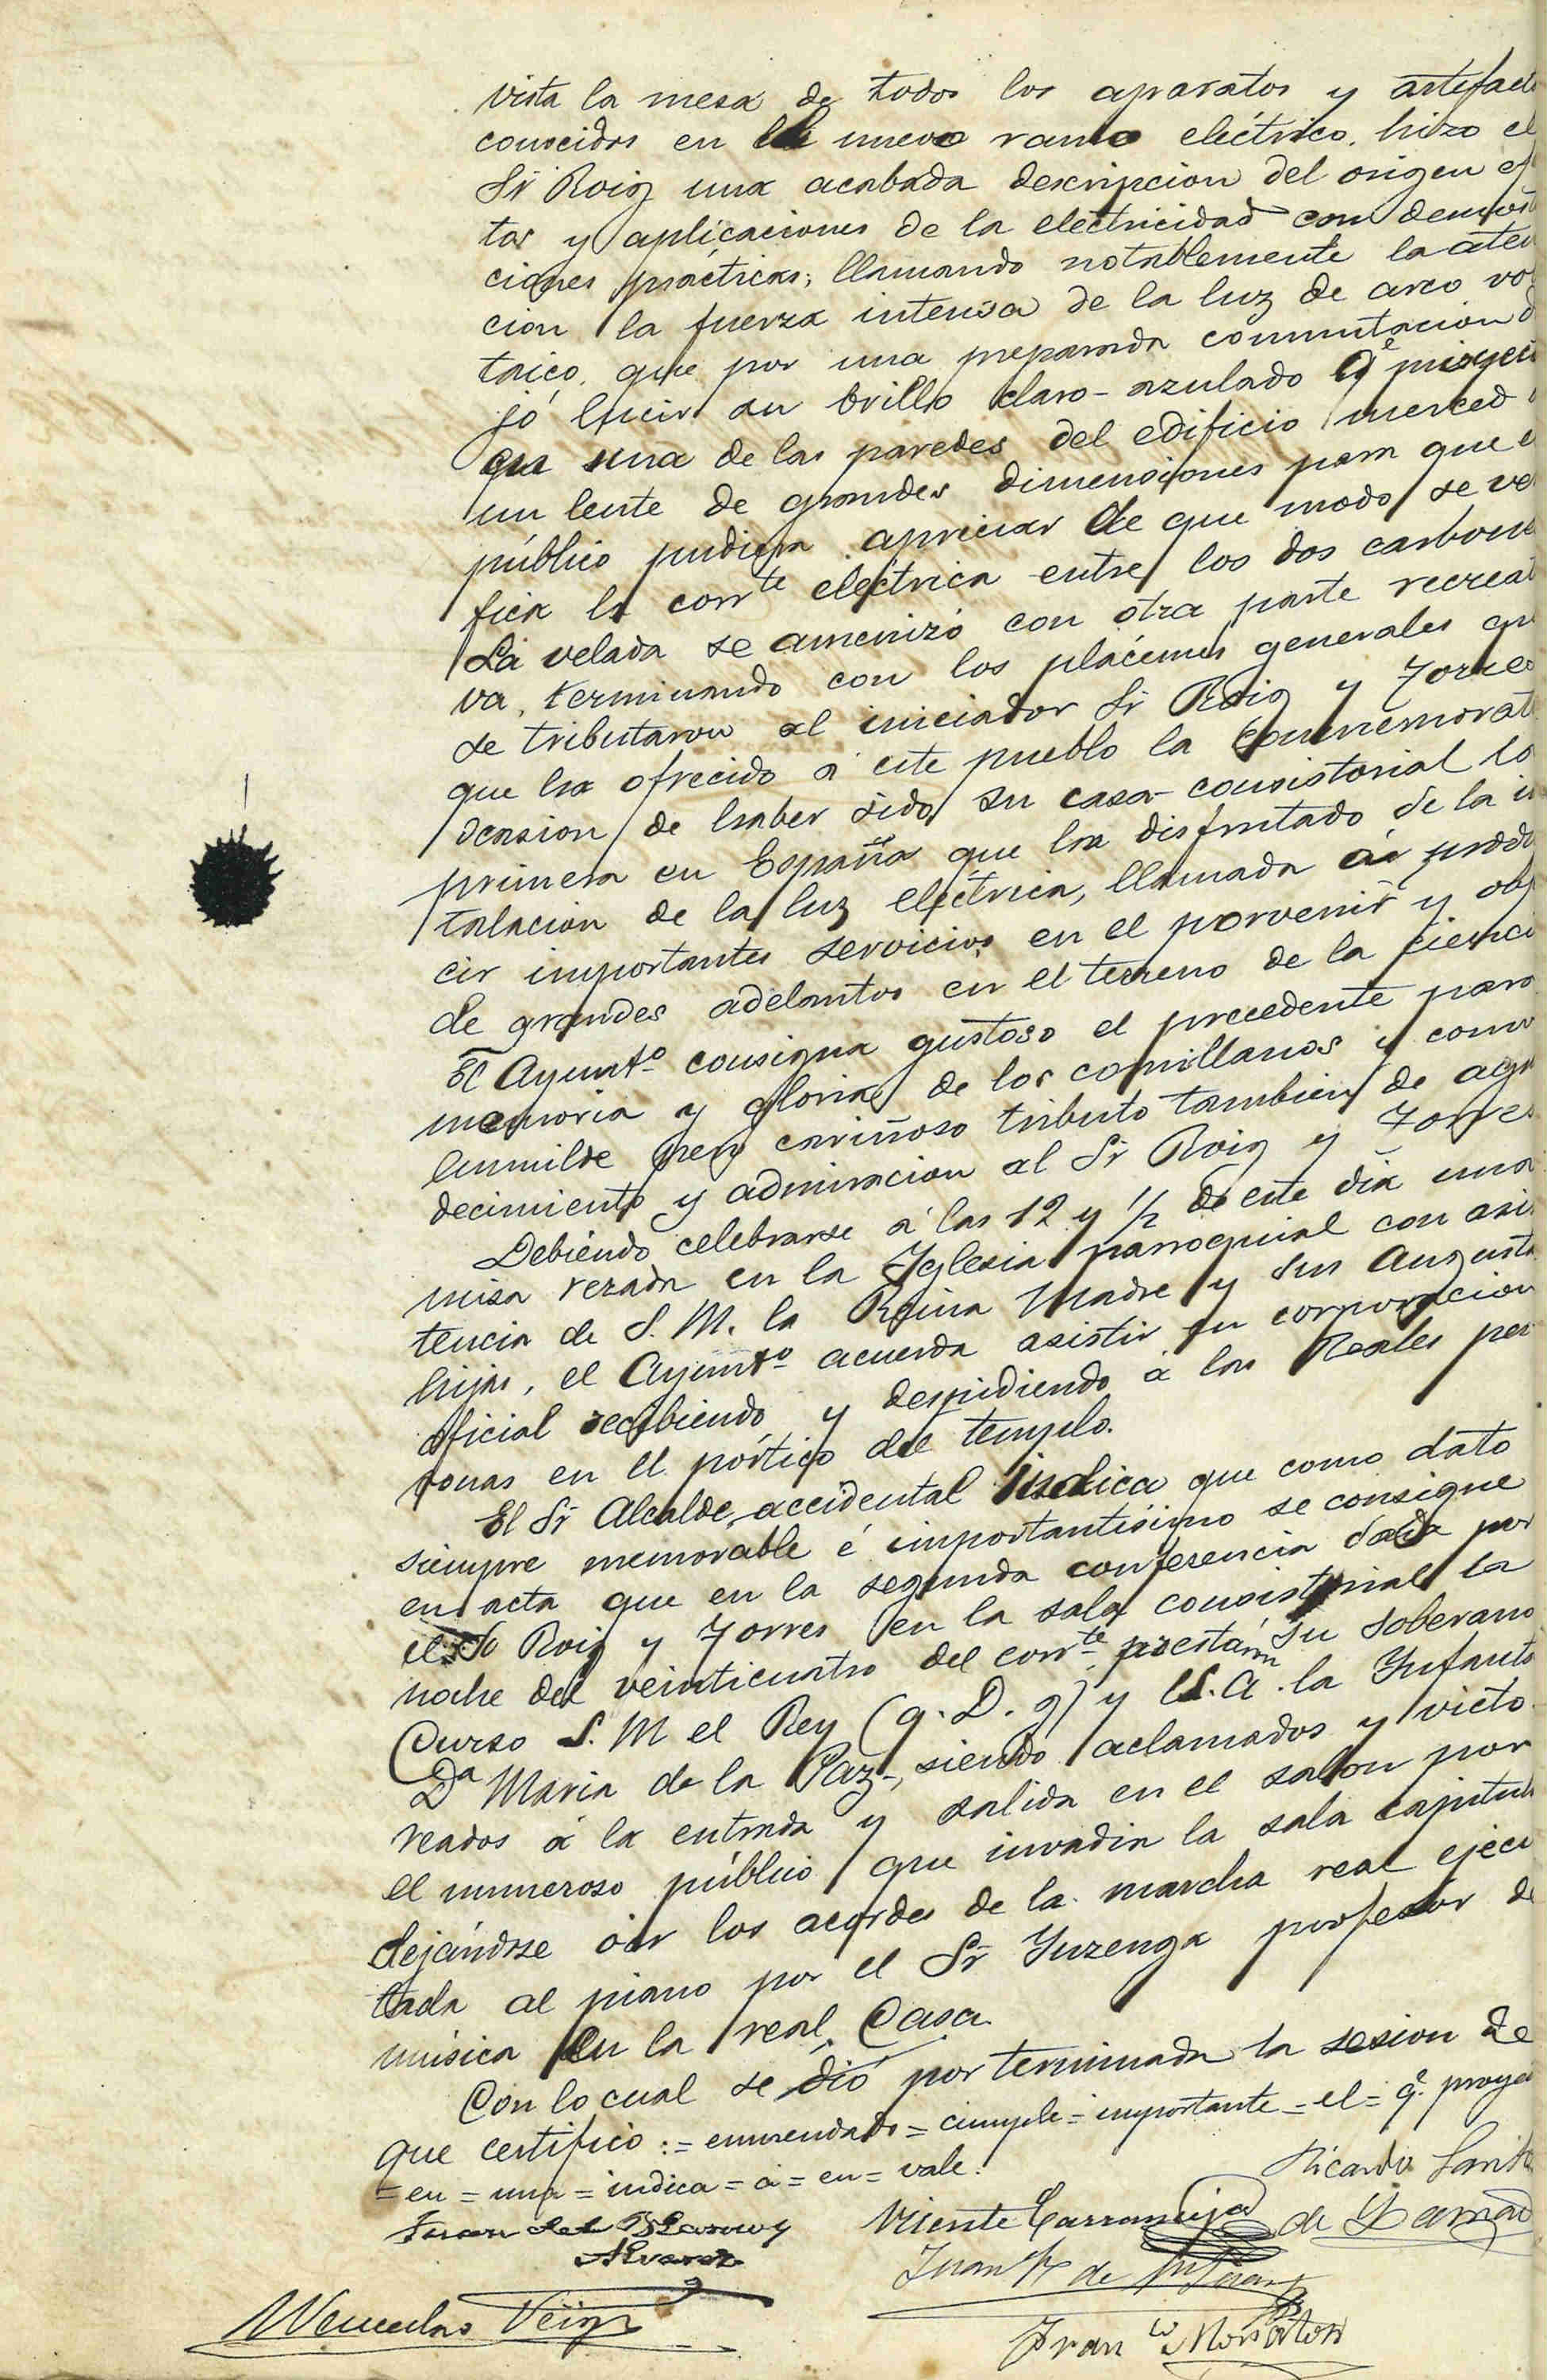 vista la mesa de todos los aparatos y artefact
conocidos en el nuevo ramo eléctrico. hizo el
Sr Roig una acabada descripcion del origen ef
tos y aplicaciones de la electricidad con demost
ciones prácticas; llamando notablemente la aten
cion la fuerza intensa de la luz de arco vol
taico, que por una preparada conmutacion d
jó lucir su brillo claro-azulado qe proyect
en una de las paredes del edificio merced
un lente de grandes dimensiones para que e
público pudiera apreciar de que modo se ve
fica la corrte eléctrica entre los dos carbone
La velada se amenizó con otra parte recreat
va, terminando con los plácemes generales qu
se tributaron al iniciador Sr Roig y Torres
que ha ofrecido á este pueblo la conmemorat
ocasion de haber sido su casa-consistorial la
primera en España que ha disfrutado de la in
talacion de la luz eléctrica, llamada á produ
cir importantes servicios en el porvenir y obj
de grandes adelantos en el terreno de la cienci
El Ayunto consigna gustoso el precedente para
memoria y gloria de los comillanos y como
humilde pero cariñoso tributo tambien de agra
decimiento y admiracion al Sr Roig y Torres
Debiendo celebrarse á las 12 y 1/2 de este dia una
misa rezada en la Iglesia parroquial con asis
tencia de S. M. la Reina Madre y sus Augusta
hijas, el Ayunto acuerda asistir en corporacion
oficial recibiendo y despidiendo á las Reales per
sonas en el pórtico del templo.
El Sr Alcalde accidental indica que como dato
siempre memorable é importantísimo se consigne
en acta que en la segunda conferencia dada por
el Sr Roig y Torres en la sala consistorial la
noche del veinticuatro del corrte prestáron su soberano
Curso S. M el Rey (q. D. g) y S. A. la Infanta
Da Maria de la Paz, siendo aclamados y victo
reados á la entrada y salida en el salon por
el numeroso público que invadia la sala capitul
dejándose oir los acordes de la marcha real ejecu
tada al piano por el Sr Inzenga profesor de
música en la real Casa.
Con lo cual se dió por terminada la sesion de
que certifico := enmendado = cumple = importante = el = qe proyec
= en = una = indica = á = en = vale.
Ricardo
Juan del
Alvarez
Vicente Carranceja
de
Juan
de
Wenceslao Veiga
Franco